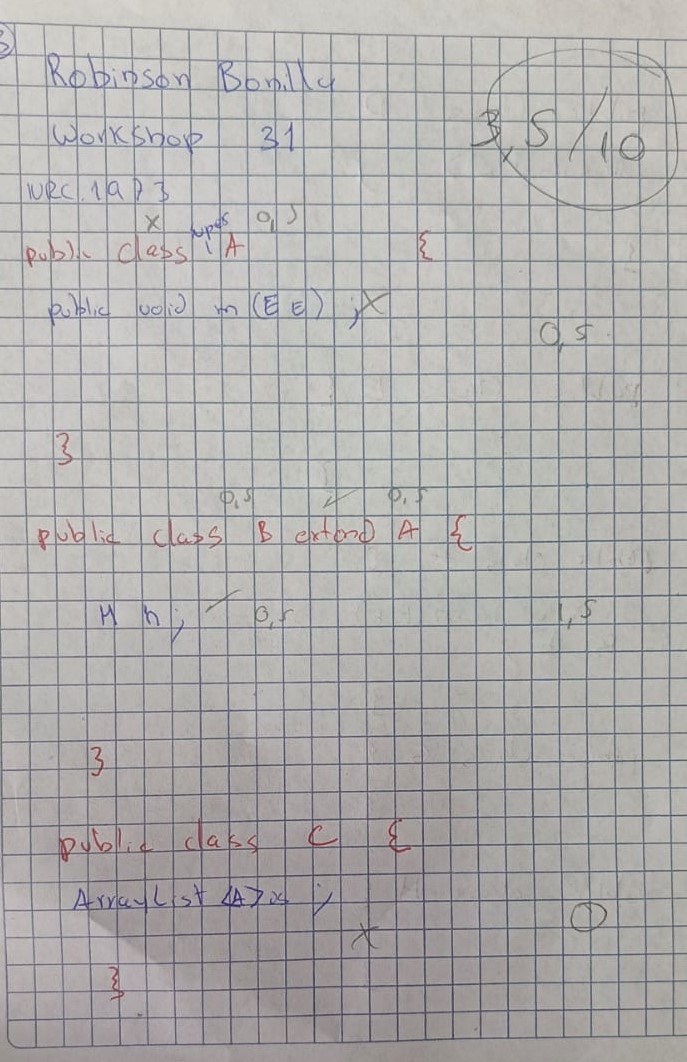 Robinson Bonilla
3,5/10
Workshop 31
NRC. 1973
x 0,5
public class A {
public void m (E E) ; x
0,5
}
0,5 0,5
public class B extend A {
H h; 0,5 1,5
}
public class C {
ArrayList <A> x ;
x
}